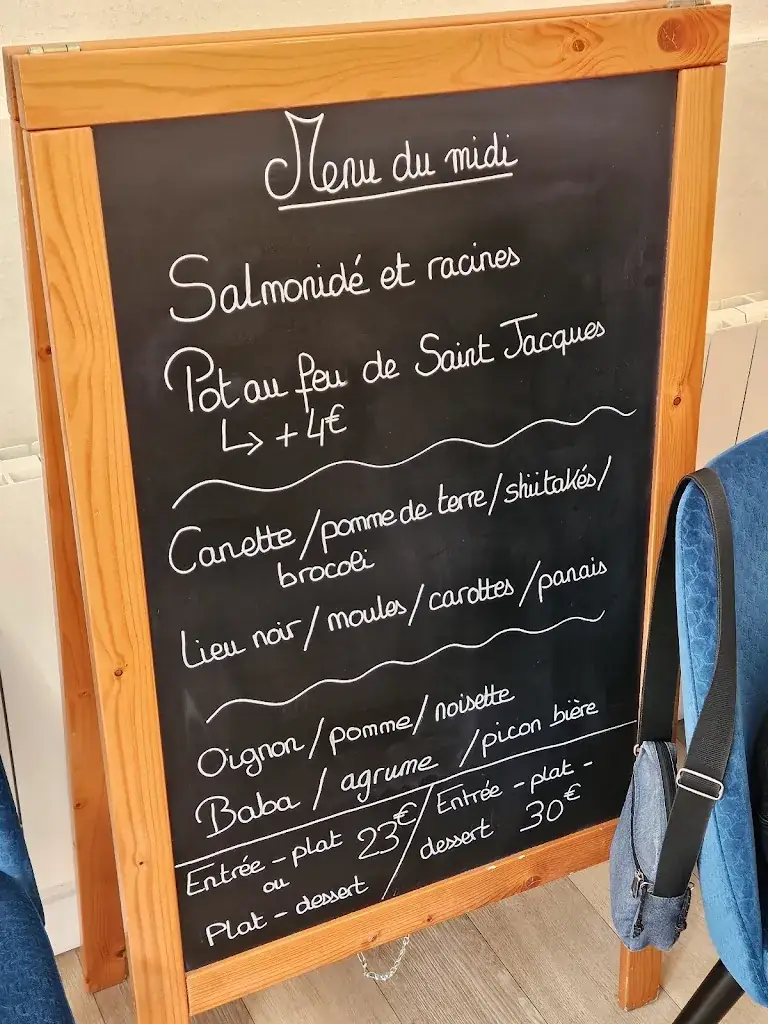 Menu du midi
Salmonidé et racines
Pot au feu de Saint Jacques
↳ + 4€
Canette / pomme de terre / shiitakés /
brocoli
Lieu noir / moules / carottes / panais
Oignon / pomme / noisette
Baba / agrume / picon bière
Entrée - plat 23€ / Entrée - plat -
ou dessert 30€
Plat - dessert